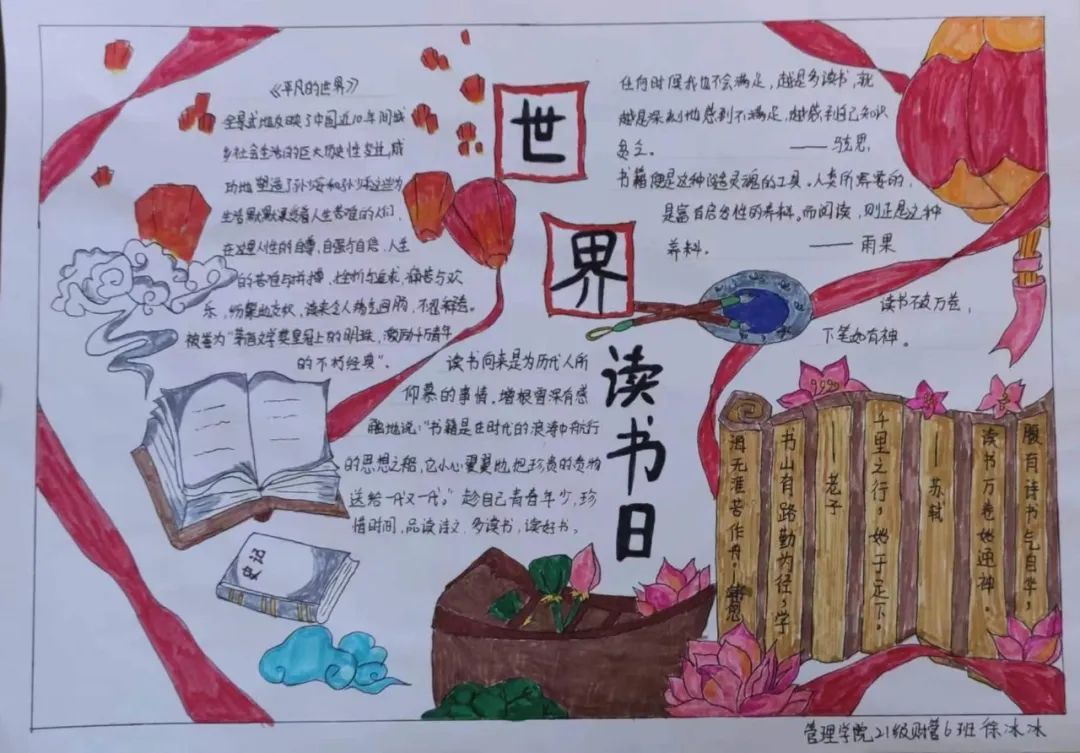 世
界
读
书
日
《平凡的世界》
全景式地反映了中国近10年间城
乡社会生活的巨大历史性变迁,成
功地塑造了孙少安和孙少平这些为
生活默默承受着人生苦难的人们,
在这里人性的自尊、自强与自信,人生
的苦难与拼搏,挫折与追求,痛苦与欢
乐,纷繁地交织,读来令人荡气回肠,不忍释卷。
被誉为“茅盾文学奖皇冠上的明珠,激励千万青年
的不朽经典”。
读书向来是为历代人所
仰慕的事情,增根雪深有感
触地说:“书籍是在时代的浪涛中航行
的思想之船,它小心翼翼地把珍贵的货物
送给一代又一代。”趁自己青春年少,珍
惜时间,品读诗文,多读书,读好书。
任何时候我也不会满足,越是多读书,就
越是深刻地感到不满足,越感到自己知识
贫乏。 ——马克思,
书籍便是这种改造灵魂的工具。人类所需要的,
是富有启发性的养料。而阅读,则正是这种
养料。 —— 雨果
读书不破万卷,
下笔如有神。
腹有诗书气自华,
读书万卷始通神。
——苏轼
千里之行,始于足下。
——老子
书山有路勤为径,学
海无涯苦作舟。韩愈
史记
管理学院21级财管6班徐冰冰